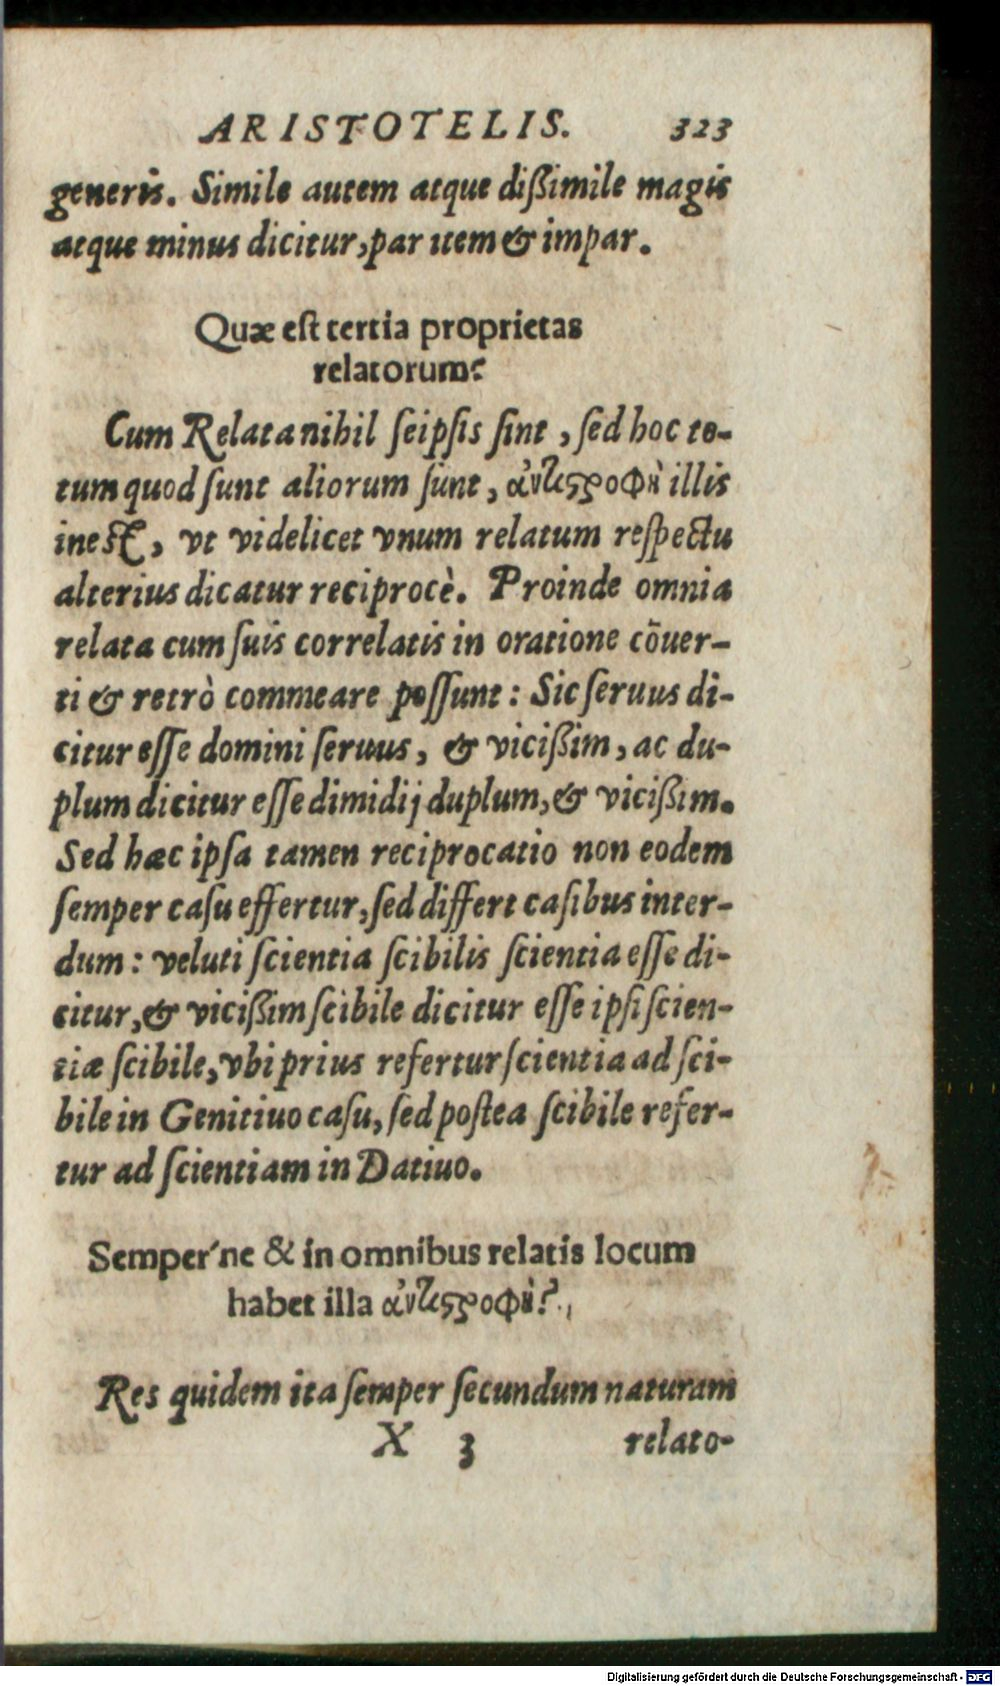 ARISTOTELIS. 323
generis. Simile autem atque dißimile magis
atque minus dicitur, par item & impar.
Quæ est tertia proprietas
relatorum?
Cum Relata nihil ſeipſis ſint, ſed hoc to-
tum quod ſunt aliorum ſunt, ἀντιςροφὴ illis
ineſt, vt videlicet vnum relatum reſpectu
alterius dicatur reciprocè. Proinde omnia
relata cum ſuis correlatis in oratione cōuer-
ti & retrò commeare poſſunt: Sic ſeruus di-
citur eſſe domini ſeruus, & vicißim, ac du-
plum dicitur eſſe dimidij duplum, & vicißim.
Sed hæc ipſa tamen reciprocatio non eodem
ſemper caſu effertur, ſed differt caſibus inter-
dum: veluti ſcientia ſcibilis ſcientia eſſe di-
citur, & vicißim ſcibile dicitur eſſe ipſi ſcien-
tiæ ſcibile, vbi prius refertur ſcientia ad ſci-
bile in Genitiuo caſu, ſed poſtea ſcibile refer-
tur ad ſcientiam in Datiuo.
Semper'ne & in omnibus relatis locum
habet illa ἀντιςροφὴ?
Res quidem ita ſemper ſecundum naturam
X 3 relato-
Digitalisierung gefördert durch die Deutsche Forschungsgemeinschaft - DFG